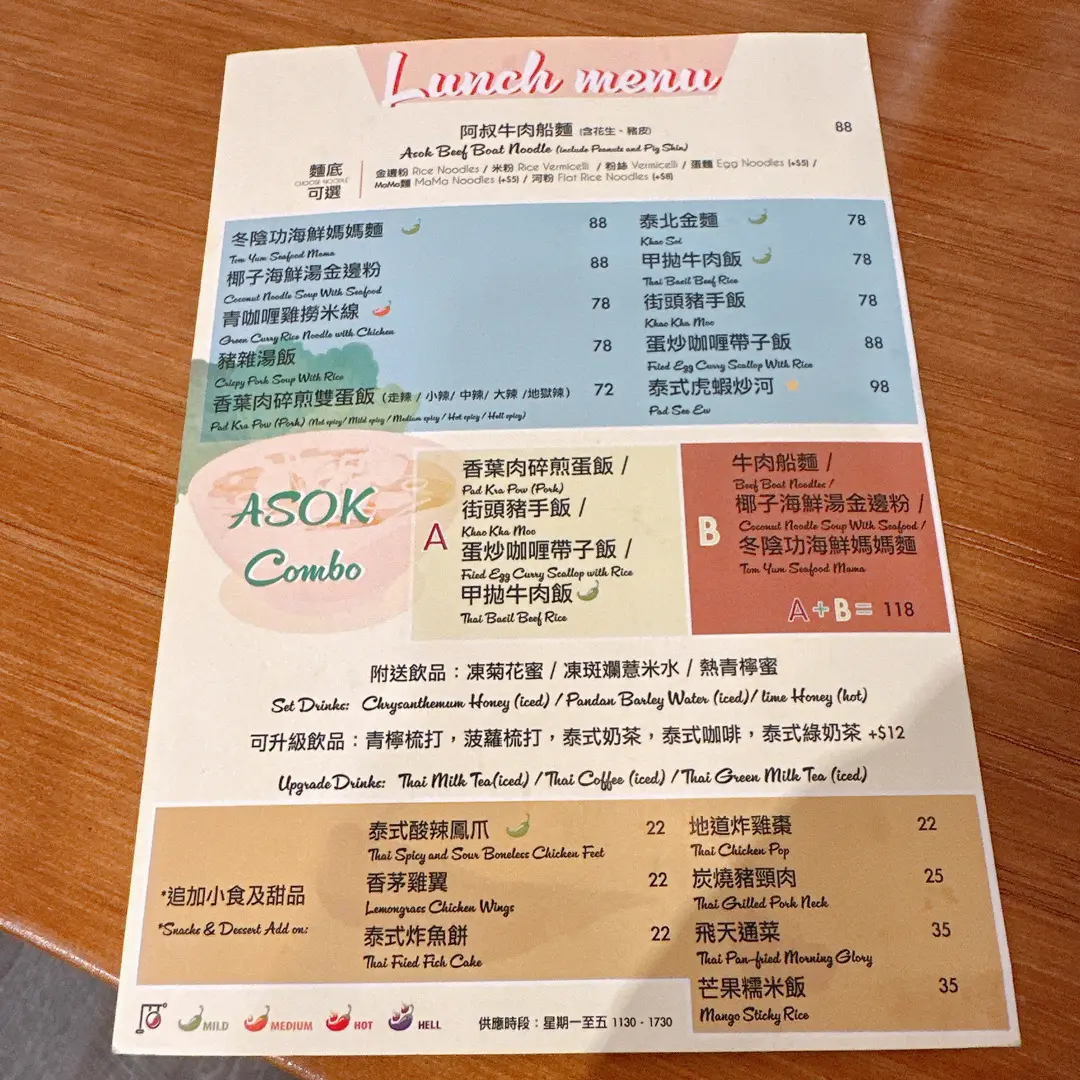 Lunch menu
阿叔牛肉船麵 (含花生、豬皮) 88
Asok Beef Boat Noodle (include Peanuts and Pig Skin)
麵底
CHOOSE NOODLE
可選
金邊粉 Rice Noodles / 米粉 Rice Vermicelli / 粉絲 Vermicelli / 蛋麵 Egg Noodles (+$5) /
MaMa麵 MaMa Noodles (+$5) / 河粉 Flat Rice Noodles (+$8)
冬陰功海鮮媽媽麵 88
Tom Yum Seafood Mama
椰子海鮮湯金邊粉 88
Coconut Noodle Soup With Seafood
青咖喱雞撈米線 78
Green Curry Rice Noodle with Chicken
豬雜湯飯 78
Crispy Pork Soup With Rice
香葉肉碎煎雙蛋飯 (走辣 / 小辣/ 中辣/ 大辣 /地獄辣) 72
Pad Kra Pow (Pork) (Not spicy/ Mild spicy / Medium spicy / Hot spicy / Hell spicy)
泰北金麵 78
Khao Soi
甲拋牛肉飯 78
Thai Basil Beef Rice
街頭豬手飯 78
Khao Kha Moo
蛋炒咖喱帶子飯 88
Fried Egg Curry Scallop With Rice
泰式虎蝦炒河 98
Pad See Ew
ASOK
Combo
A
香葉肉碎煎蛋飯 /
Pad Kra Pow (Pork)
街頭豬手飯 /
Khao Kha Moo
蛋炒咖喱帶子飯 /
Fried Egg Curry Scallop with Rice
甲拋牛肉飯
Thai Basil Beef Rice
B
牛肉船麵 /
Beef Boat Noodles /
椰子海鮮湯金邊粉 /
Coconut Noodle Soup With Seafood /
冬陰功海鮮媽媽麵
Tom Yum Seafood Mama
A + B = 118
附送飲品：凍菊花蜜 / 凍斑斕薏米水 / 熱青檸蜜
Set Drinks: Chrysanthemum Honey (iced) / Pandan Barley Water (iced)/ lime Honey (hot)
可升級飲品：青檸梳打，菠蘿梳打，泰式奶茶，泰式咖啡，泰式綠奶茶 +$12
Upgrade Drinks: Thai Milk Tea(iced) / Thai Coffee (iced) / Thai Green Milk Tea (iced)
*追加小食及甜品
*Snacks & Dessert Add on:
泰式酸辣鳳爪 22
Thai Spicy and Sour Boneless Chicken Feet
香茅雞翼 22
Lemongrass Chicken Wings
泰式炸魚餅 22
Thai Fried Fish Cake
地道炸雞棗 22
Thai Chicken Pop
炭燒豬頸肉 25
Thai Grilled Pork Neck
飛天通菜 35
Thai Pan-fried Morning Glory
芒果糯米飯 35
Mango Sticky Rice
MILD MEDIUM HOT HELL
供應時段：星期一至五 1130 - 1730